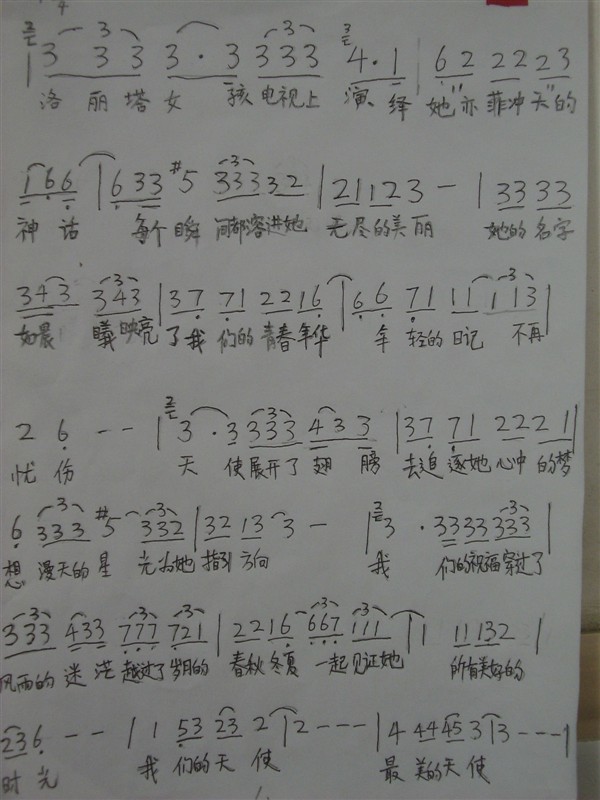 3 3 3 3 · 3 3 3 3 4 · 1 | 6 2 2 2 2 3
洛丽塔女孩电视上演绎她"亦菲冲天"的
1 6 6 | 6 3 3 #5 3 3 3 3 2 | 2 1 1 2 3 - | 3 3 3 3
神话 每个瞬间都溶进她 无尽的美丽 她的名字
3 4 3 3 4 3 | 3 7 7 1 2 2 1 6 | 6 6 7 1 1 1 1 1 3 |
如晨曦映亮了我们的青春年华 年轻的日记 不再
2 6 - - | 3 · 3 3 3 3 4 3 3 | 3 7 7 1 2 2 2 1 |
忧伤 天使展开了翅膀 去追逐她心中的梦
6 3 3 3 #5 3 3 2 | 3 2 1 3 3 - | 3 · 3 3 3 3 3 3 3 |
想 漫天的星光为她指引方向 我们的祝福穿过了
3 3 3 4 3 3 7 7 7 7 2 1 | 2 2 1 6 6 6 7 1 1 1 | 1 1 1 1 3 2 |
风雨的迷茫越过了岁月的春秋冬夏 一起见证她 所有美好的
2 3 6 - - | 1 1 5 3 2 3 2 | 2 - - - | 4 4 4 4 5 3 | 3 - - - |
时光 我们的天使 最美的天使